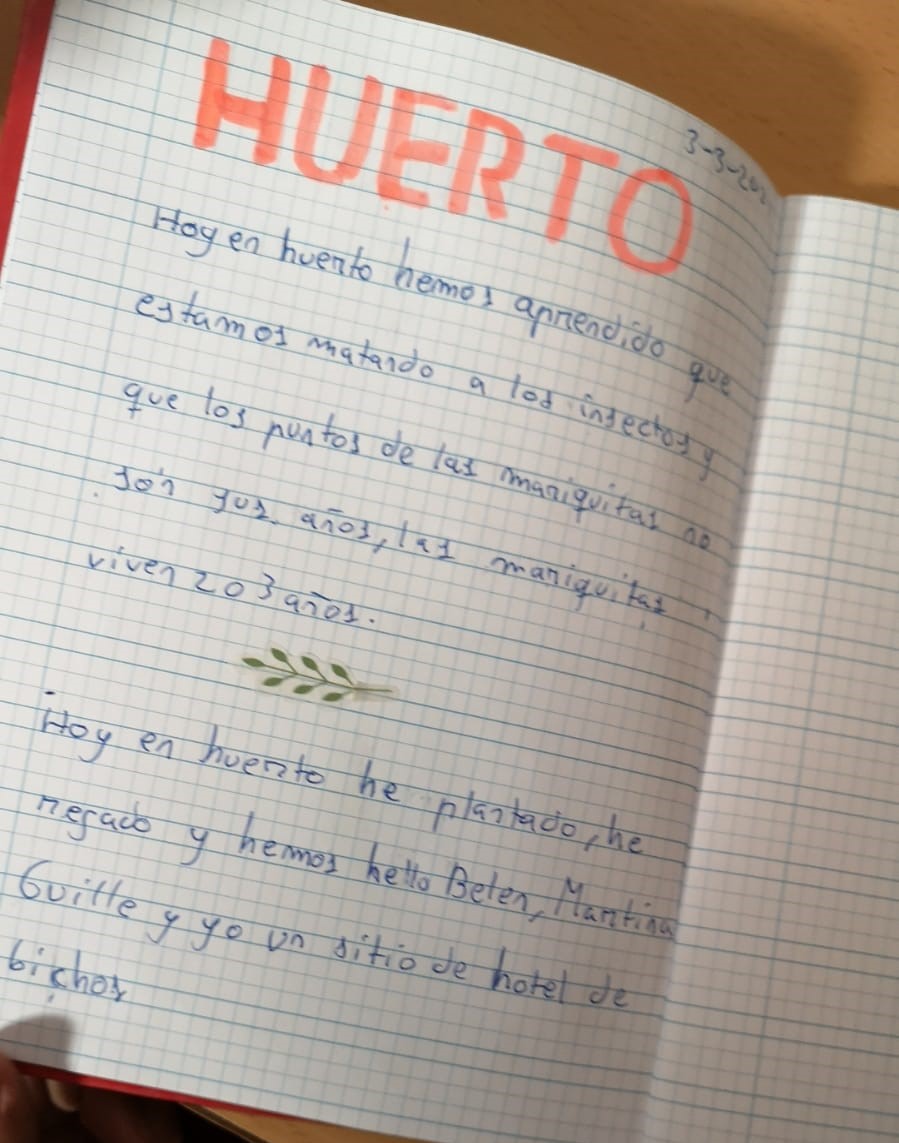 HUERTO
3-3-202
Hoy en huerto hemos aprendido que
estamos matando a los insectos y
que los puntos de las mariquitas no
son sus años, las mariquitas
viven 2 o 3 años.
Hoy en huerto he plantado, he
regado y hemos hetto Belen, Martina
Guille y yo un sitio de hotel de
bichos